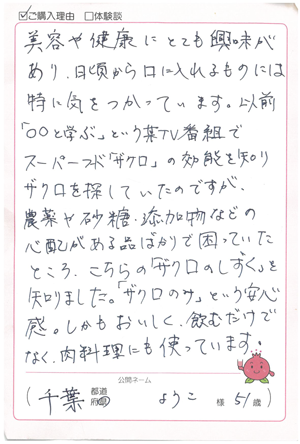 ☑ご購入理由 □体験談
美容や健康にとても興味が
あり、日頃から口に入れるものには
特に気をつかっています。以前
「○○と学ぶ」という某TV番組で
スーパーフード「ザクロ」の効能を知り
ザクロを探していたのですが、
農薬や砂糖・添加物などの
心配がある品ばかりで困っていた
ところ、こちらの「ザクロのしずく」を
知りました。「ザクロのみ」という安心
感。しかもおいしく、飲むだけで
なく、肉料理にも使っています。
公開ネーム
(千葉 都道府県 ようこ 様 51歳)